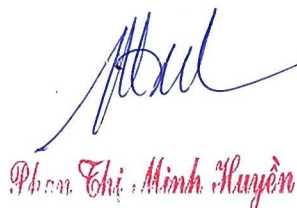 Phan Thị Minh Huyền